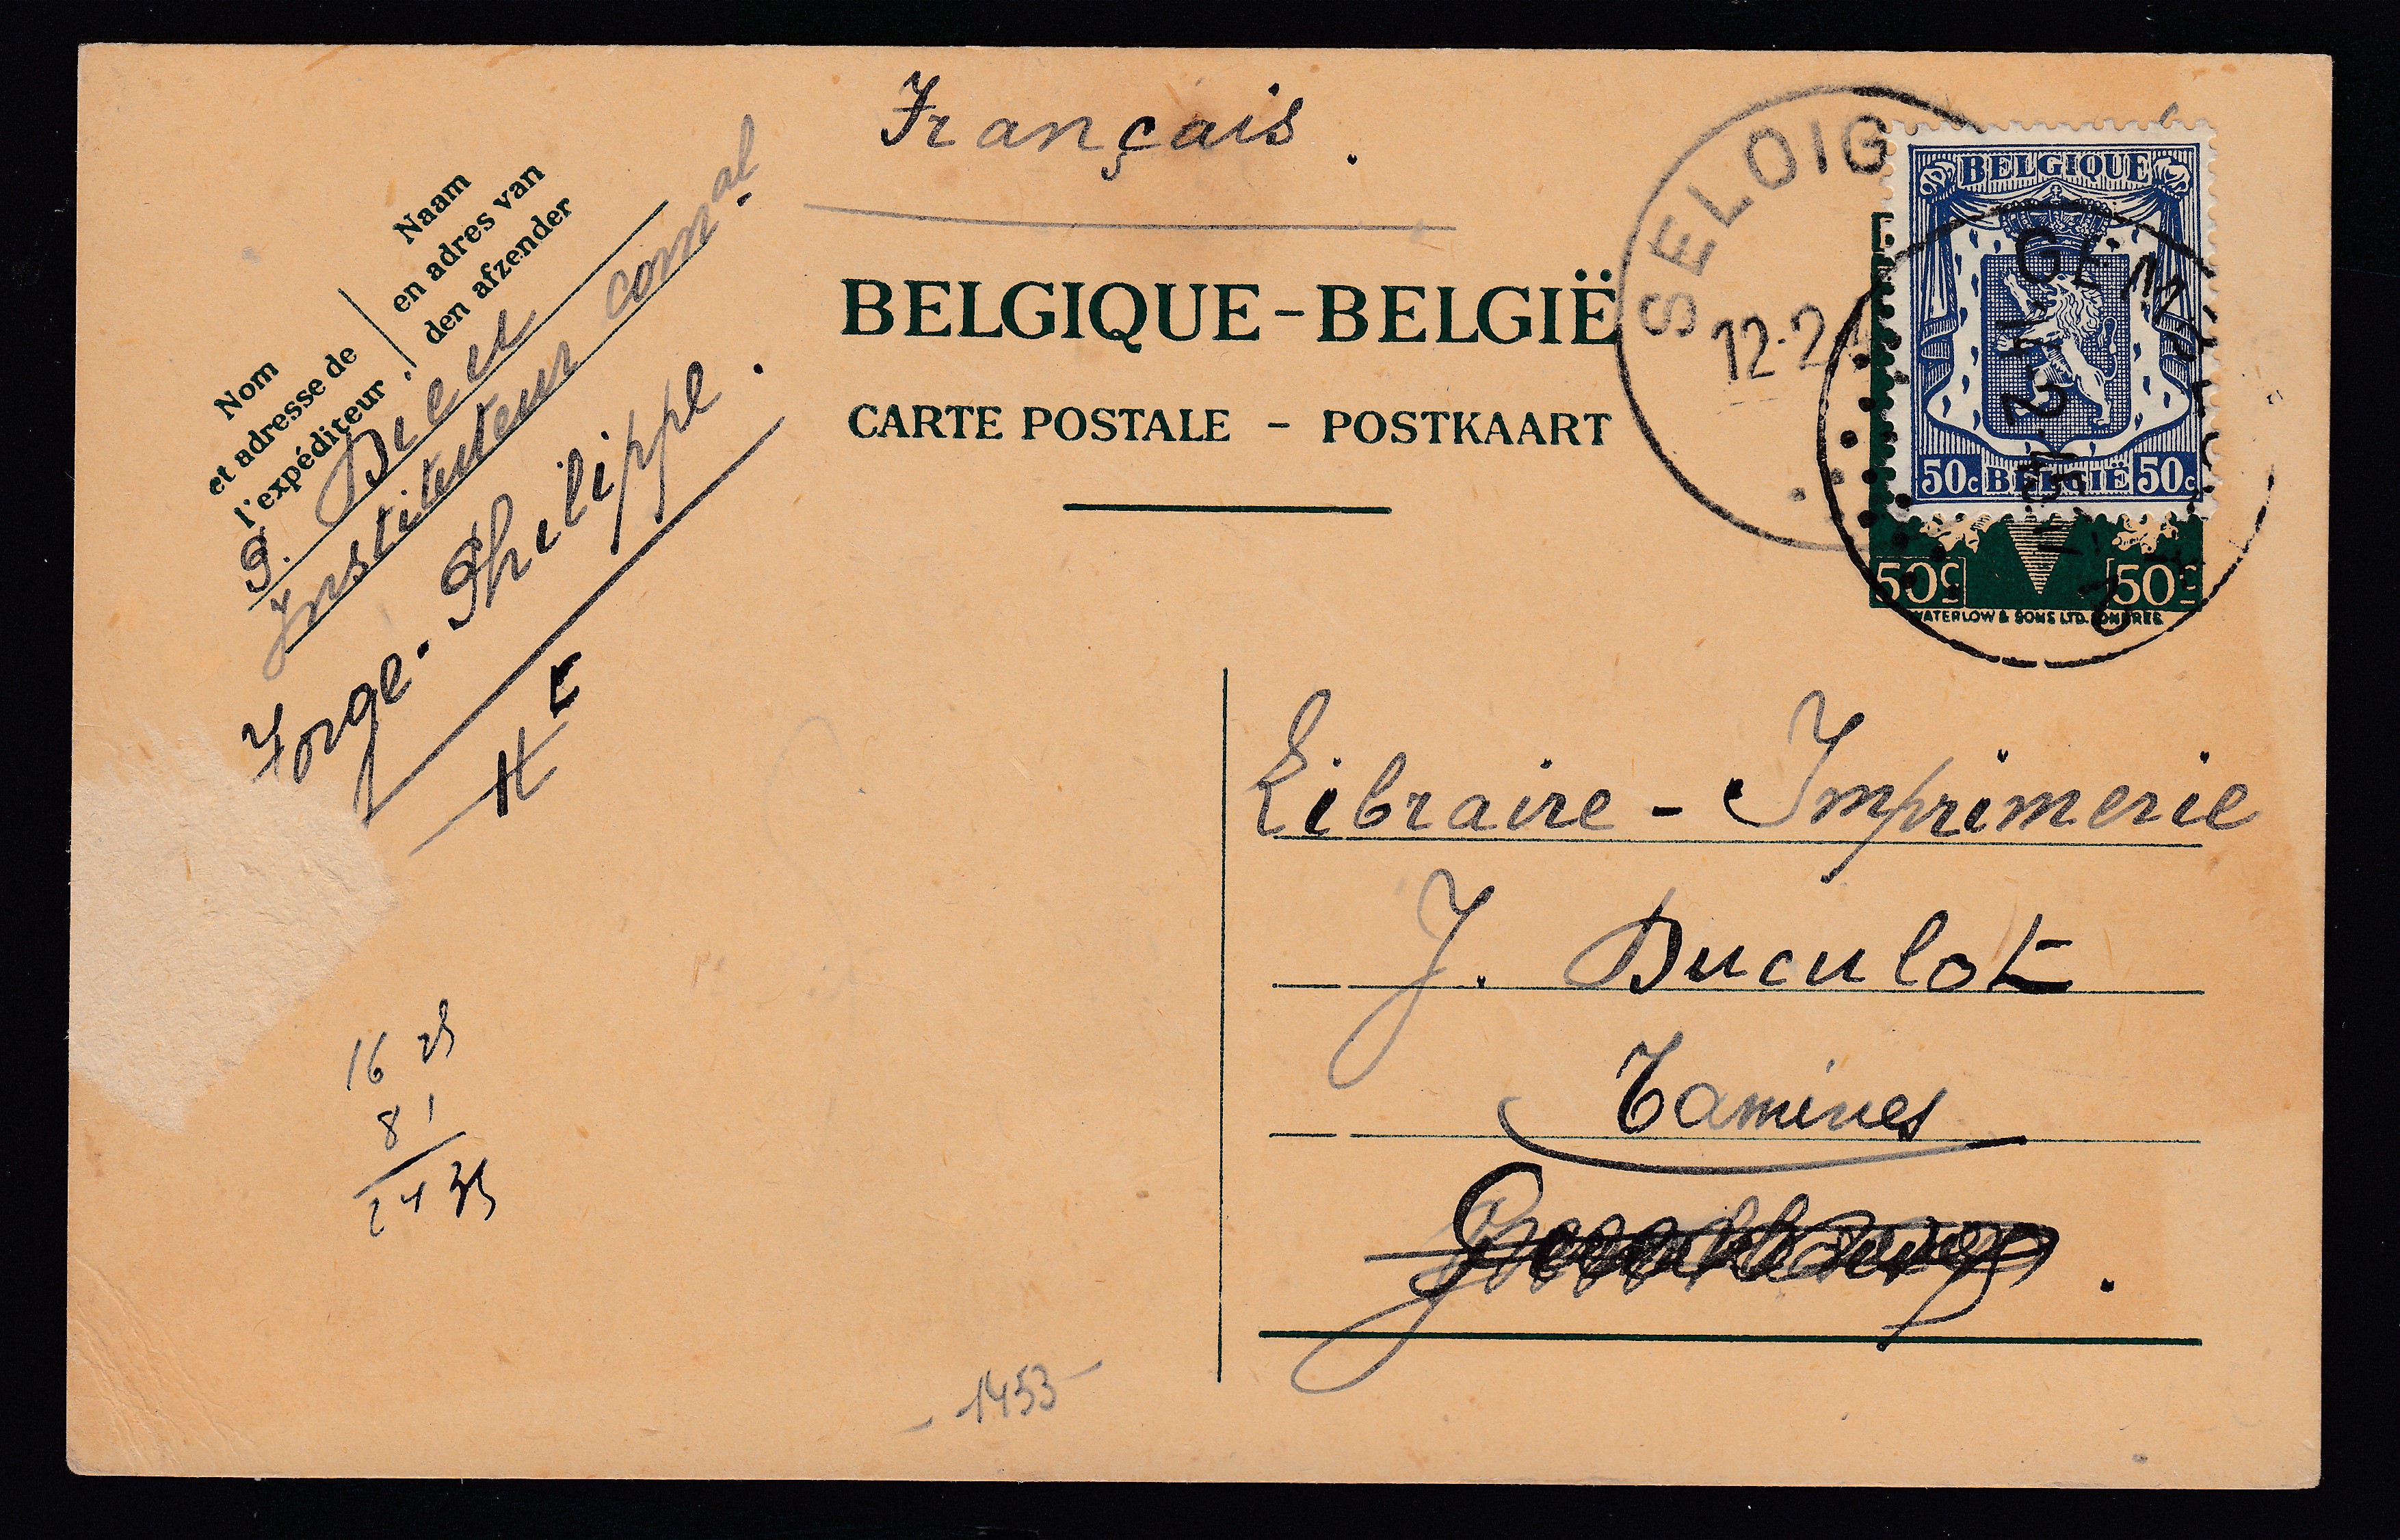 Français.
Naam
en adres van
den afzender
Nom
et adresse de
l'expéditeur
G. Dieu
Instituteur comal
Forge-Philippe.
Ht
BELGIQUE - BELGIË
CARTE POSTALE - POSTKAART
SELOIG
12-2
BELGIQUE
50c BELGIË 50c
GEMBLO
50c 50c
WATERLOW & SONS LTD. LONDRES
Libraire - Imprimerie
J. Duculot
Tamines
16 25
8 1
24 35
- 1453 -